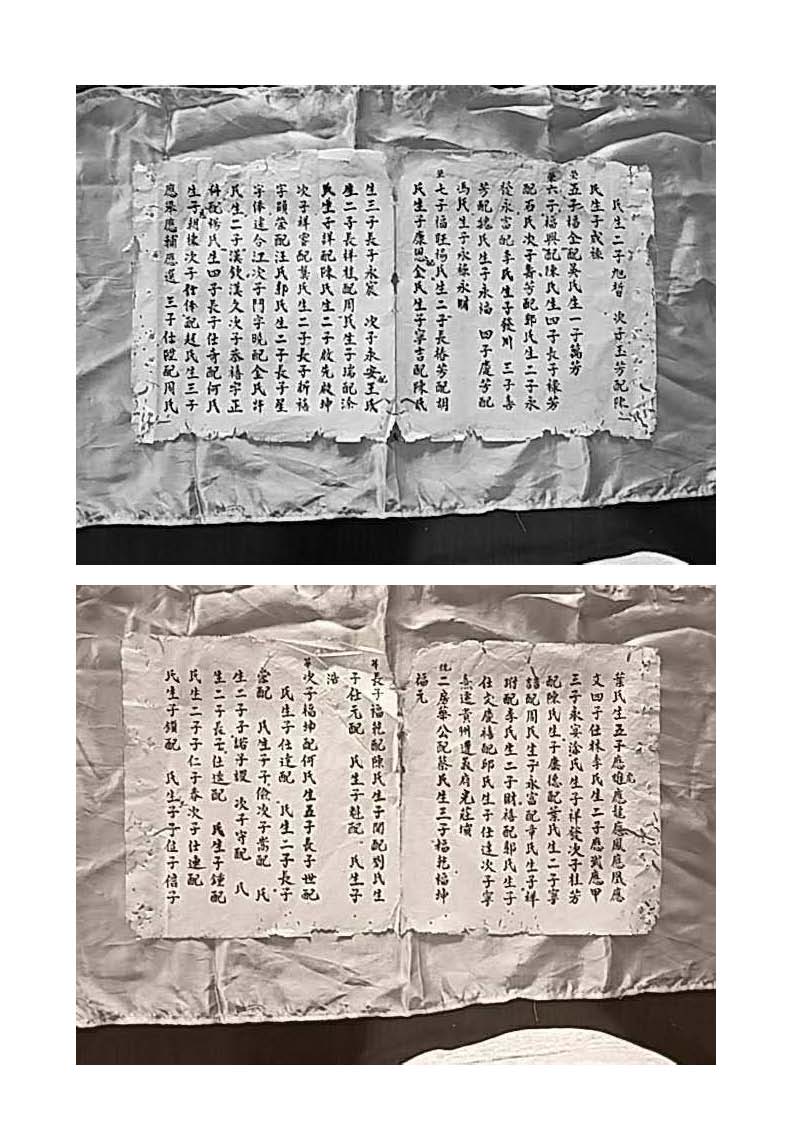 氏生二子旭哲 次子玉芳配陳
氏生子成祿
五子福全配吳氏生一子萬芳
六子福興配陳氏生四子長子祿芳
配石氏次子壽芳配郭氏生二子永
發永富配李氏生子發川 三子喜
芳配魏氏生子永福 四子慶芳配
馮氏生子永祿永財
七子福旺楊氏生二子長椿芳配胡
氏生子康恩 金氏生子寧吉配陳氏
生三子長子永宸 次子永安王氏
生二子長祥桂配周氏生子瑞配涂
氏生子詳配陳氏生二子啟先啟坤
次子祥富配龔氏生二子長子新禧
字頤榮配汪氏郭氏生二子長子星
字俸達令江次子門字曉配金氏許
氏生二子漢欽漢久次子恭禧字正
配楊氏生四子長子仕奇配何氏
生子 次子信俸配趙氏生三子
應榮應輔應選 三子仕陞配周氏
葉氏生五子應 應龍應鳳應凰應
文四子仕林李氏生二子應戰應甲
三子永宏涂氏生子祥發次子桂芳
配陳氏生子康德配葉氏生二子寧
喆配周氏生子永富配章氏生子祥
配李氏生二子財禧配郭氏生子
仕文慶禧配邱氏生子仕達次子寧
熹速貴州遵義府光莊墳
二房華公配蔡氏生三子福乾福坤
福元
長子福乾配陳氏生子閏配劉氏生
子仕元配 氏生子魁配 氏生子
浩
次子福坤配何氏生五子長子世配
氏生子仕達配 氏生二子長子
崇配 氏生子子儉次子嵩配 氏
生二子子諾子稷 次子守配 氏
生二子長子仕遠配 氏生子鍾配
氏生二子子仁子春次子仕連配
氏生子鎖配 氏生子子位子信子